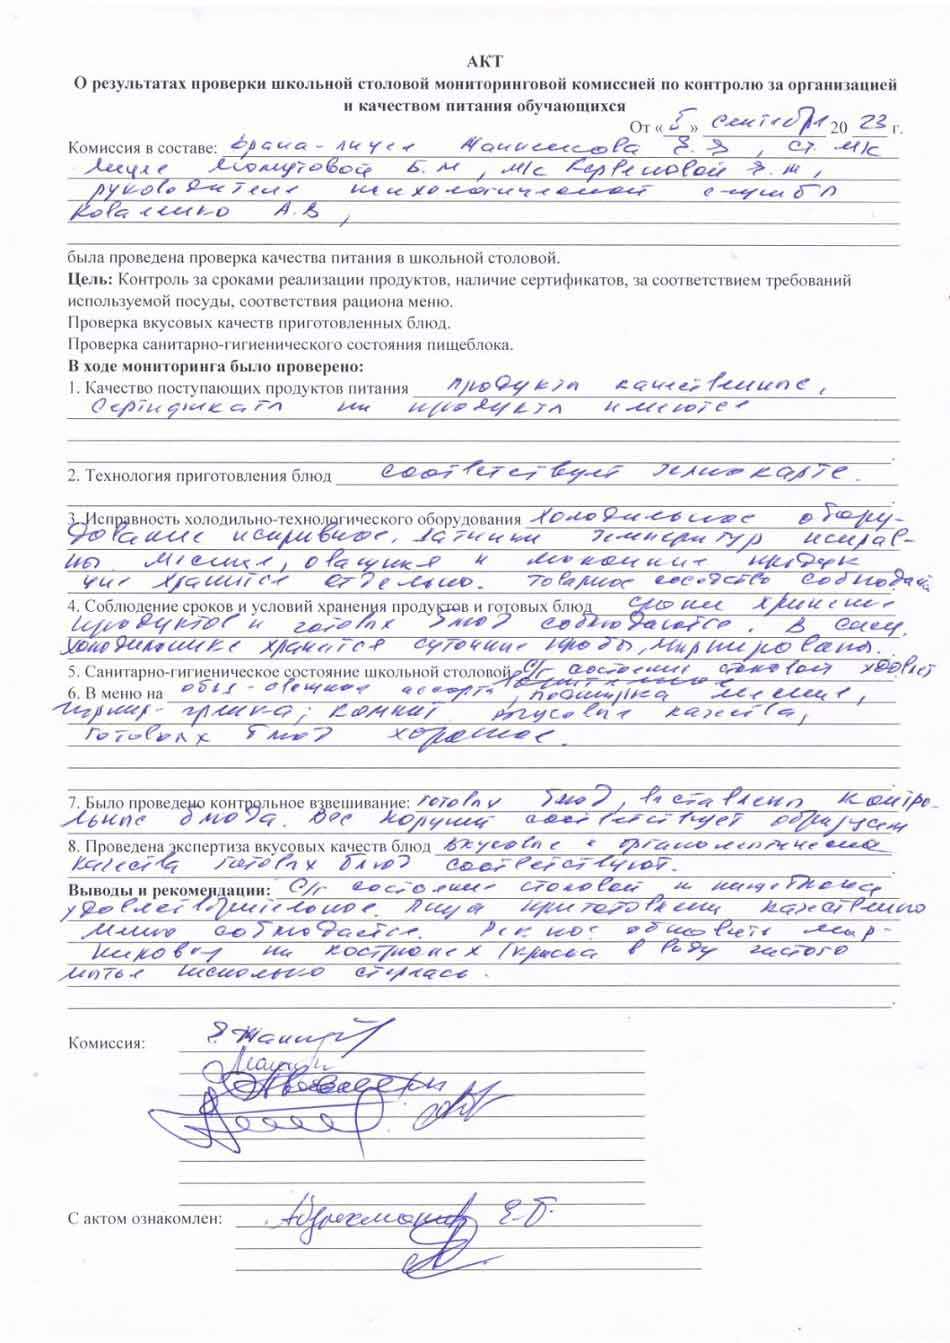 АКТ
О результатах проверки школьной столовой мониторинговой комиссией по контролю за организацией
и качеством питания обучающихся
От « » сентября 20 23 г.
Комиссия в составе: врача-лицея З.З , ст. м/с
лицея Б.М , м/с З.Ж ,
руководителя психологической службы
Коваленко А.В ,
была проведена проверка качества питания в школьной столовой.
Цель: Контроль за сроками реализации продуктов, наличие сертификатов, за соответствием требований
используемой посуды, соответствия рациона меню.
Проверка вкусовых качеств приготовленных блюд.
Проверка санитарно-гигиенического состояния пищеблока.
В ходе мониторинга было проверено:
1. Качество поступающих продуктов питания продукты качественные,
Сертификаты на продукты имеются
.
2. Технология приготовления блюд соответствует техмокарте.
.
3. Исправность холодильно-технологического оборудования Холодильное обору-
дование исправное. Датчики температур исправ-
ны. Мясные, овощные и молочние продук
ции хранятся отдельно. Товарное соседство соблюдали
4. Соблюдение сроков и условий хранения продуктов и готовых блюд сроки хранение
продуктов и готовых блюд соблюдаются. В спец.
холодильнике хранятся суточние пробы, маркированы.
5. Санитарно-гигиеническое состояние школьной столовой с/г состояние столовой удовлет
ворительное
6. В меню на обед-овощное ассорти, подлирка мясние,
гарнир-гречка; компот вкусовые качества,
готовых блюд хорошие.
7. Было проведено контрольное взвешивание: готовых блюд, выставлены контро-
льные блюда. Вес порций соответствует образцам
8. Проведена экспертиза вкусовых качеств блюд вкусовые и органолептические
качества готовых блюд соответствуют.
Выводы и рекомендации: С/г состояние столовой и пищеблока
удовлетворительное. Пища приготовлена качественно
меню соблюдается. обновить мар-
кировки на кастрюлях (краска в виду частого
мытья несколько стерлась.
.
Комиссия:
С актом ознакомлен: Абдрахманова Е.Б.